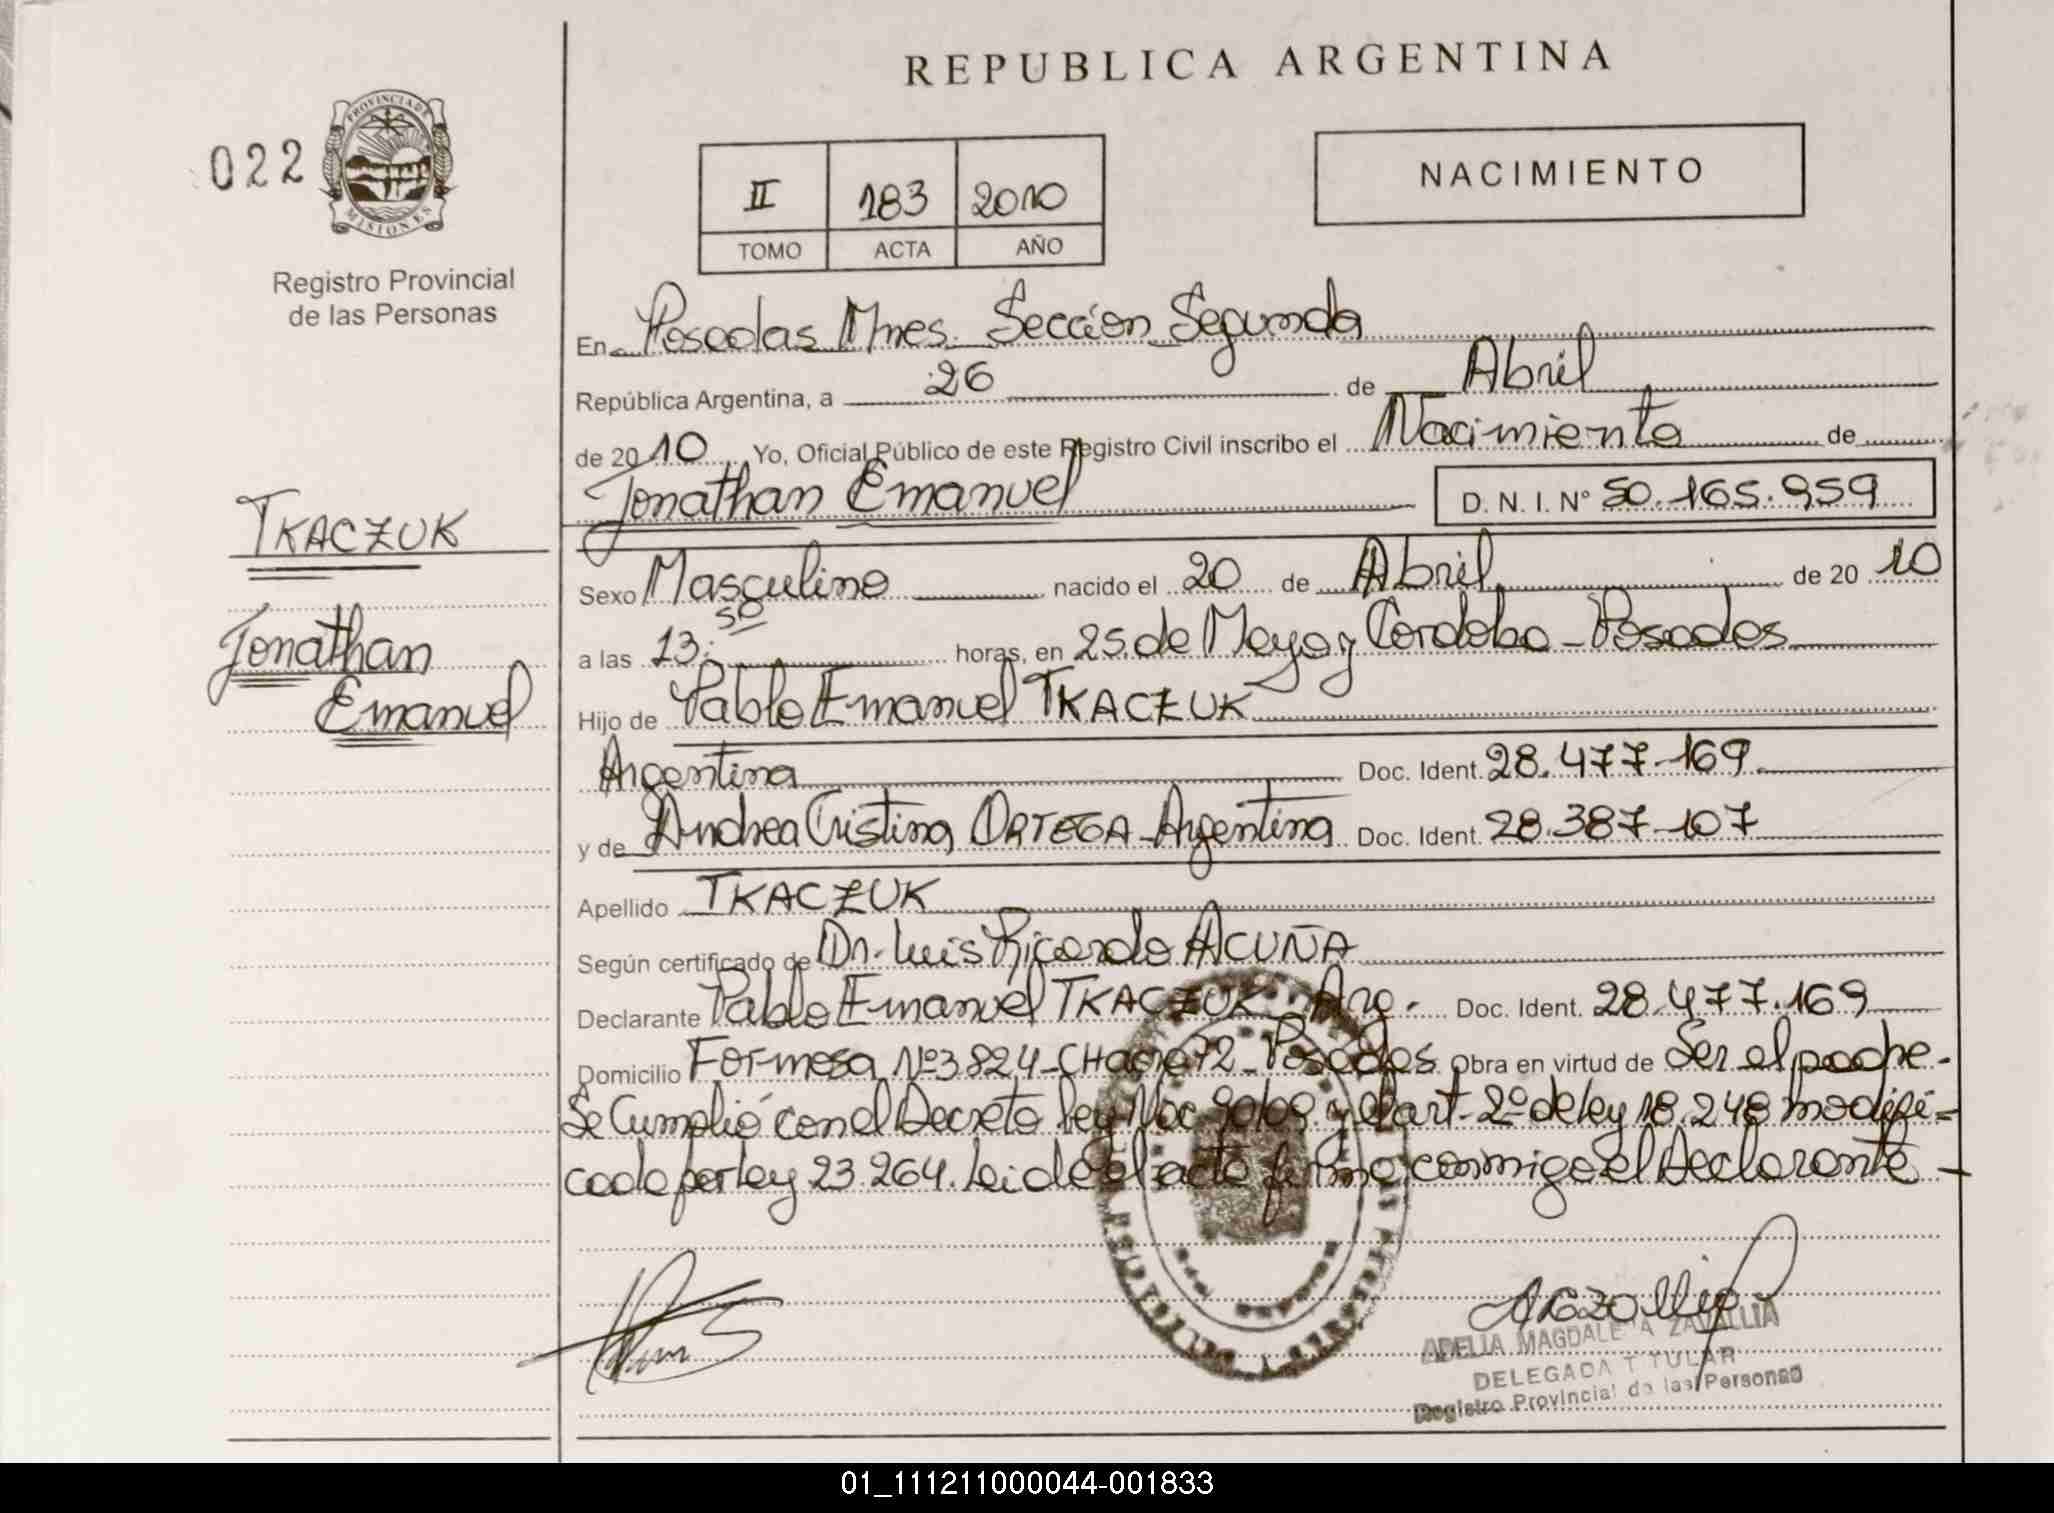 REPUBLICA ARGENTINA
022
PROVINCIA DE
MISIONES
Registro Provincial
de las Personas
II 183 2010
TOMO ACTA AÑO
NACIMIENTO
En Posadas Mnes. Sección Segunda
República Argentina, a 26 de Abril
de 2010 Yo, Oficial Público de este Registro Civil inscribo el Nacimiento de
Jonathan Emanuel D. N. I. N° 50.165.959
TKACZUK
Jonathan
Emanuel
Sexo Masculino nacido el 20 de Abril de 2010
a las 13:50 horas, en 25 de Mayo y Cordoba - Posadas
Hijo de Pablo Emanuel TKACZUK
Argentina Doc. Ident. 28.477.169
y de Andrea Cristina ORTEGA - Argentina Doc. Ident. 28.387.107
Apellido TKACZUK
Según certificado de Dr. Luis Ricardo ACUÑA
Declarante Pablo Emanuel TKACZUK - Arg. Doc. Ident. 28.477.169
Domicilio Formosa Nº 3824 - CHacra 72 - Posadas Obra en virtud de Ser el padre -
Se Cumplió con el Decreto Ley Nac 90/09 y el art. 2º de ley 18.248 modifi=
cado por ley 23.264. Leida el acta firma conmigo el Declarante -
ADELIA MAGDALENA ZAVALLIA
DELEGADA TITULAR
Registro Provincial de las Personas
01_111211000044-001833